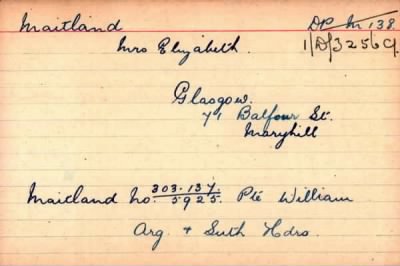 Maitland DP M 138.
1/D/3256 G.
Mrs Elizabeth.
Glasgow.
71 Balfour St.
Maryhill
Maitland No 303.137. Pte William
5925.
Arg. + Suth Hdrs.